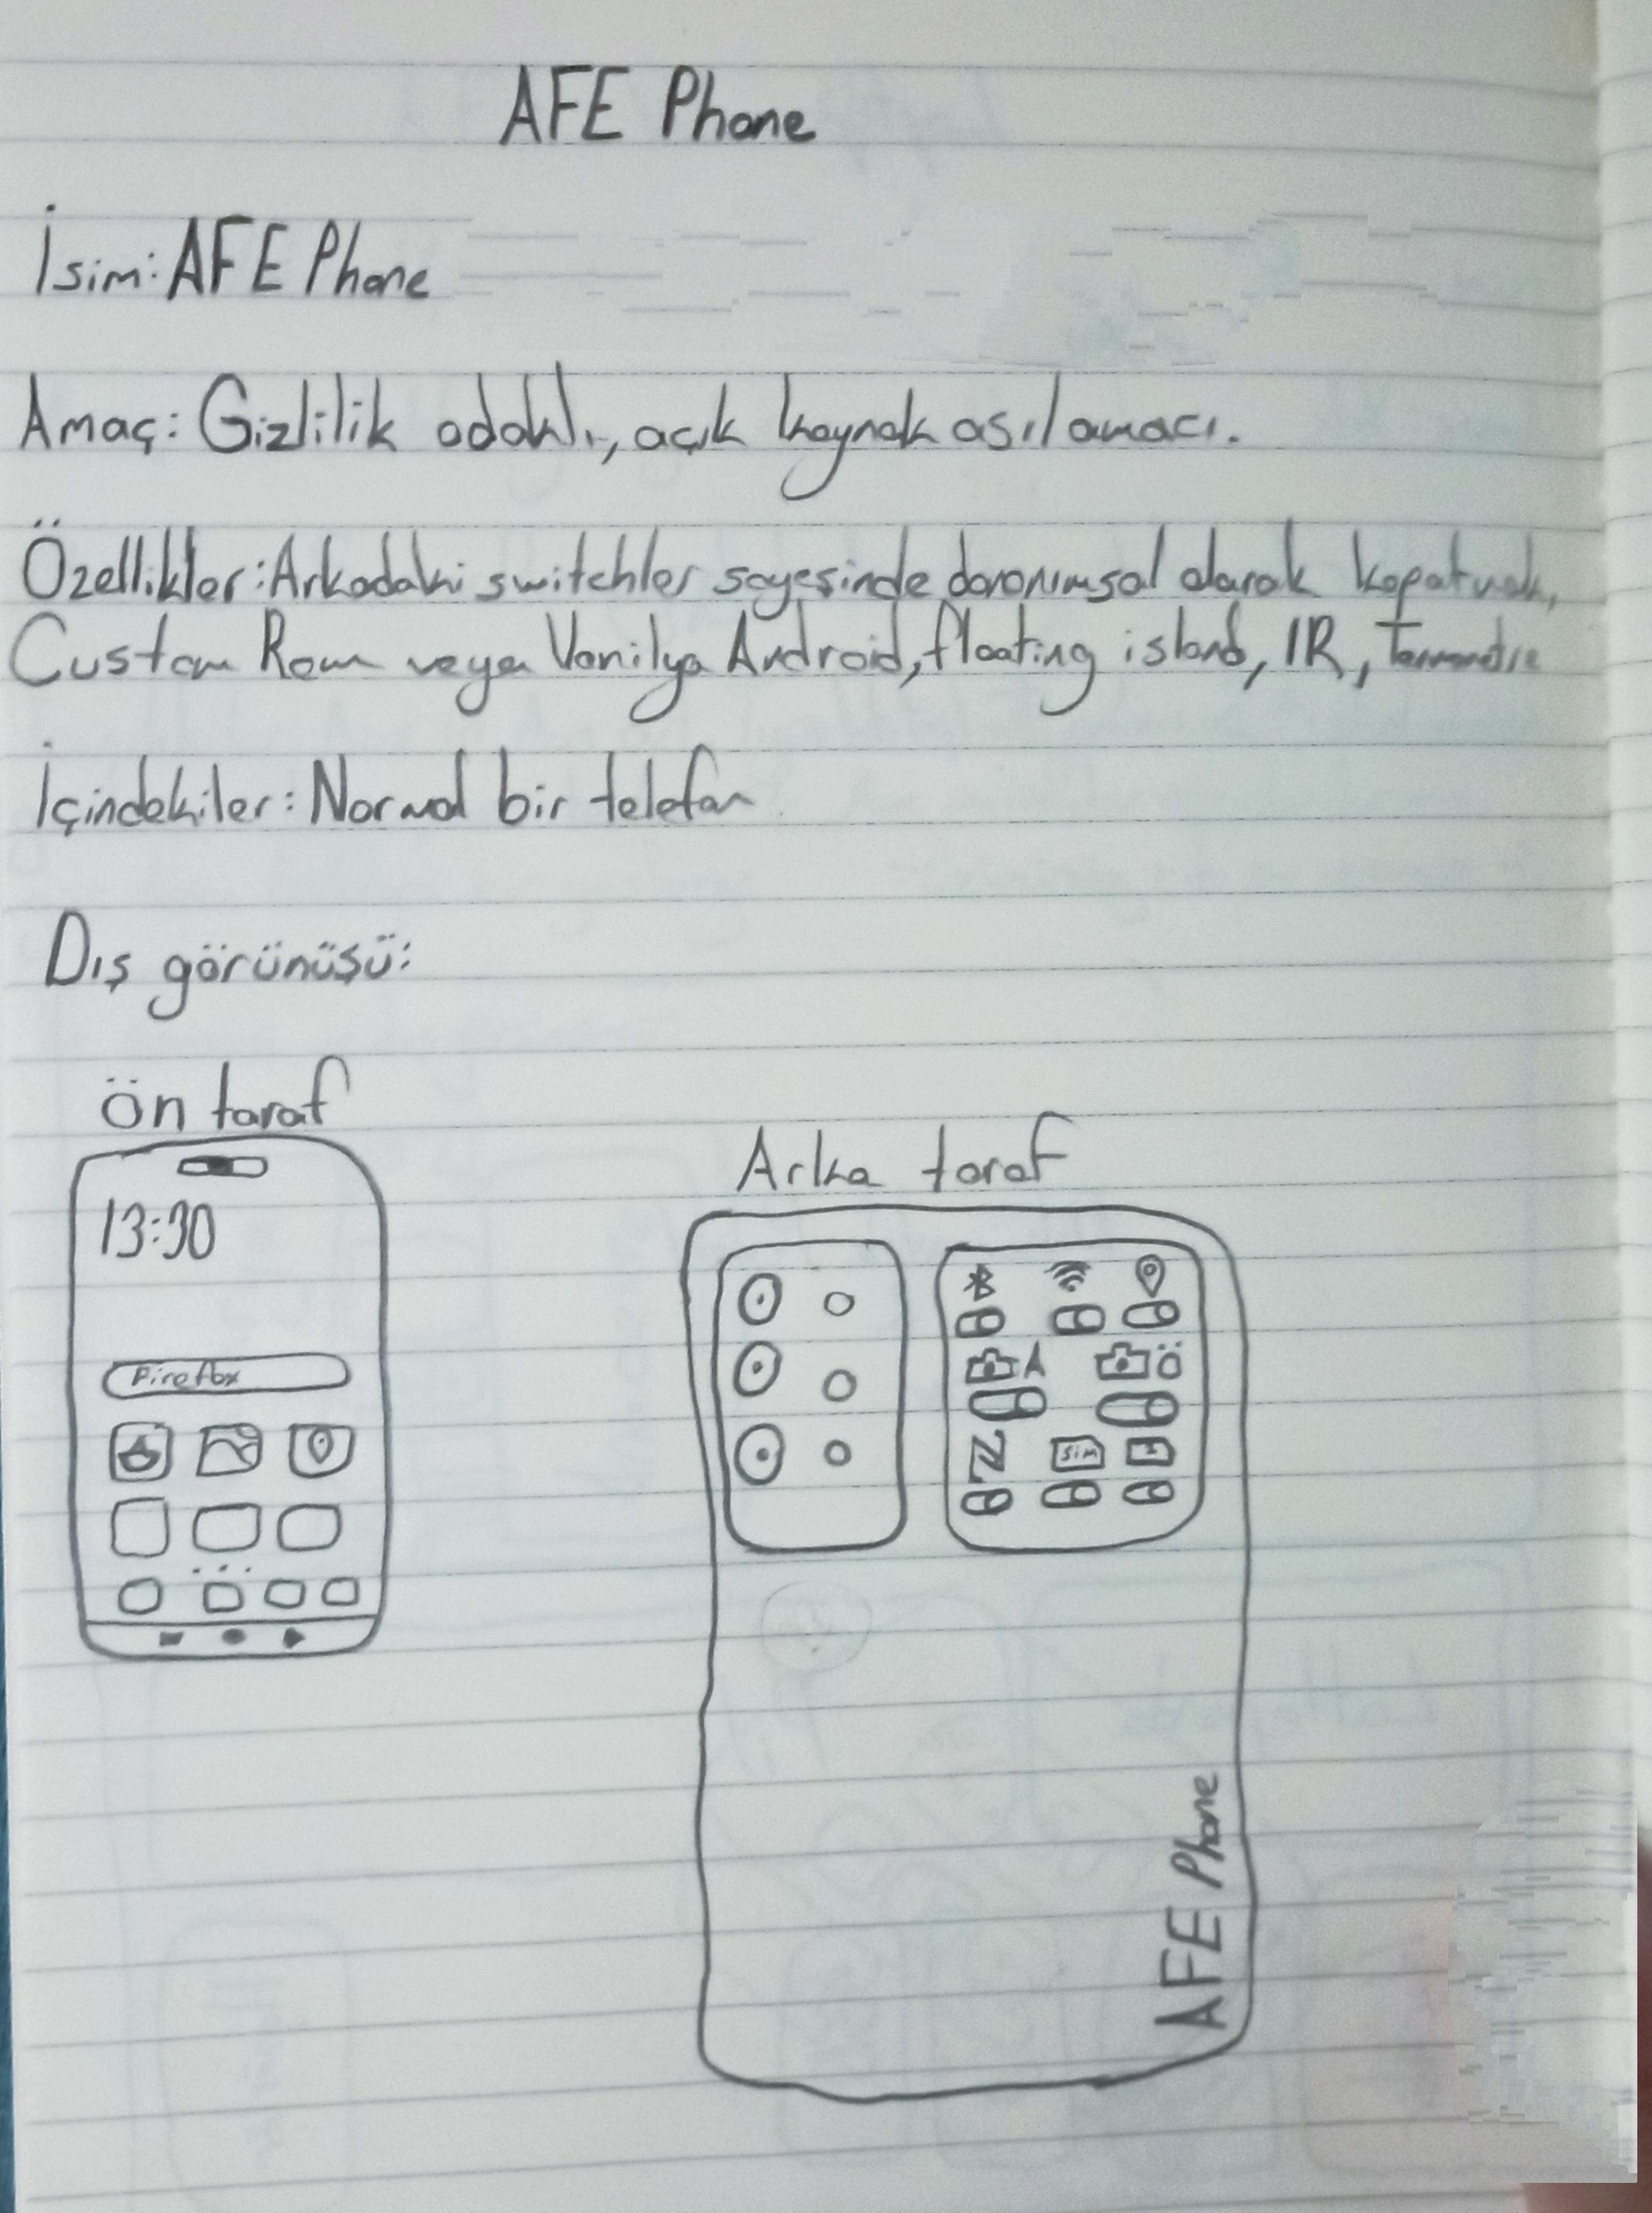 AFE Phone
İsim: AFE Phone
Amaç: Gizlilik odaklı, açık kaynak asıl amacı.
Özellikler: Arkadaki switchler sayesinde donanımsal olarak kapatmak,
Custom Rom veya Vanilya Android, floating island, IR, Termometre
İçindekiler: Normal bir telefon
Dış görünüşü:
Ön taraf
13:30
Firefox
Arka taraf
A
Ö
SIM
AFE Phone